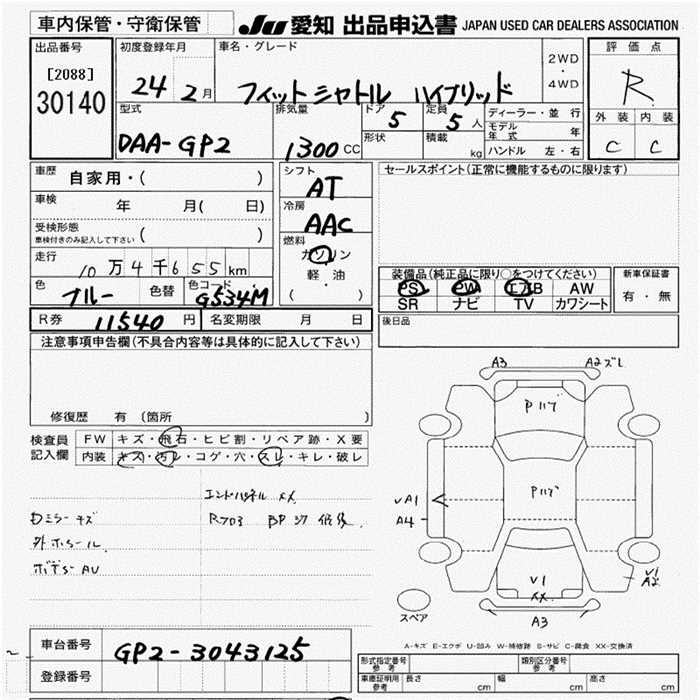 車内保管・守衛保管
JU 愛知 出品申込書 JAPAN USED CAR DEALERS ASSOCIATION
出品番号
[2088]
30140
初度登録年月
24 2月
車名・グレード
フィットシャトル ハイブリッド
2WD
・
4WD
評価点
R
外装 内装
C C
型式
DAA-GP2
排気量
1300 CC
ドア
5
定員
5人
形状
積載
kg
ディーラー・並行
モデル年式 年
ハンドル 左・右
車歴
自家用・( )
車検
年 月( 日)
受検形態
車検付きのみ記入して下さい ( )
走行
10万4千655km
色
ブルー
色替
色コード
G534M
シフト
AT
冷房
AAC
燃料
ガソリン
・
軽・油
( )
セールスポイント(正常に機能するものに限ります)
装備品(純正品に限り○をつけてください)
PS PW エアB AW
SR ナビ TV カワシート
新車保証書
有・無
R券 11540円
名変期限 月 日
後日品
注意事項申告欄(不具合内容等は具体的に記入して下さい)
修復歴 有(箇所 )
検査員
記入欄
FW キズ・飛石・ヒビ割・リペア跡・X要
内装 キズ・汚レ・コゲ・穴・スレ・キレ・破レ
エンドパネル XX
R703 BP 37 修復
Dミラーキズ
外ホイール
ボデー AU
A3
A2ズレ
Pハゲ
Pハゲ
VA1
A4
V1
XX
V1
A2
A3
スペア
A-キズ E-エクボ U-凹み W-補修跡 S-サビ C-腐食 XX-交換済
車台番号 GP2-3043125
登録番号
形式指定番号
参考
類別区分番号
参考
車庫証明用
参考
長さ cm 幅 cm 高さ cm